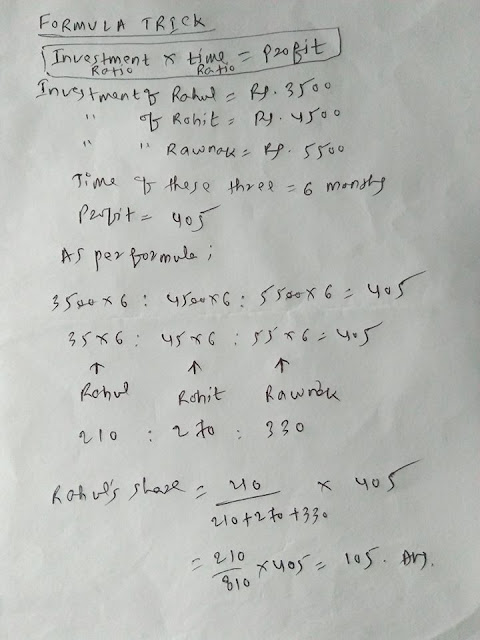 FORMULA TRICK
Investment x time = Profit
Ratio Ratio
Investment of Rahul = Rs. 3500
" of Rohit = Rs. 4500
" " Rawnak = Rs. 5500
Time of these three = 6 months
Profit = 405
As per formula ;
3500 x 6 : 4500 x 6 : 5500 x 6 = 405
35 x 6 : 45 x 6 : 55 x 6 = 405
↑ ↑ ↑
Rahul Rohit Rawnak
210 : 270 : 330
Rahul's share = 210 / 210 + 270 + 330 x 405
= 210 / 810 x 405 = 105. Ans.